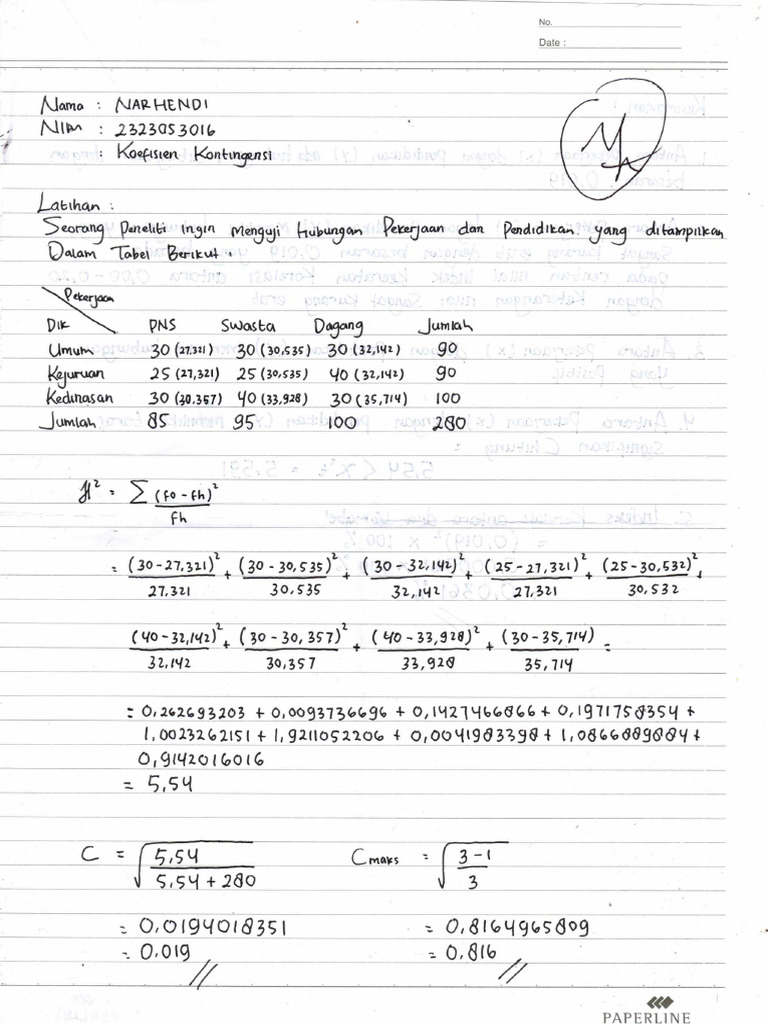 No.
Date :
Nama : NARHENDI
NIM : 2323053016
: Koefisien Kontingensi
Latihan :
Seorang Peneliti ingin menguji Hubungan Pekerjaan dan Pendidikan yang ditampilkan
Dalam Tabel Berikut.
Pekerjaan
Dik PNS Swasta Dagang Jumlah
Umum 30 (27,321) 30 (30,535) 30 (32,142) 90
Kejuruan 25 (27,321) 25 (30,535) 40 (32,142) 90
Kedinasan 30 (30,357) 40 (33,928) 30 (35,714) 100
Jumlah 85 95 100 280
X² = Σ (fo - fh)² / fh
= (30 - 27,321)² / 27,321 + (30 - 30,535)² / 30,535 + (30 - 32,142)² / 32,142 + (25 - 27,321)² / 27,321 + (25 - 30,532)² / 30,532 +
(40 - 32,142)² / 32,142 + (30 - 30,357)² / 30,357 + (40 - 33,928)² / 33,928 + (30 - 35,714) / 35,714 =
= 0,262693203 + 0,0093736696 + 0,1427466866 + 0,1971758354 +
1,0023262151 + 1,9211052206 + 0,0041983398 + 1,0866889884 +
0,9142016016
= 5,54
C = √ 5,54 / 5,54 + 280 C maks = √ 3 - 1 / 3
= 0,0194018351 = 0,8164965809
= 0.019 = 0.816
PAPERLINE